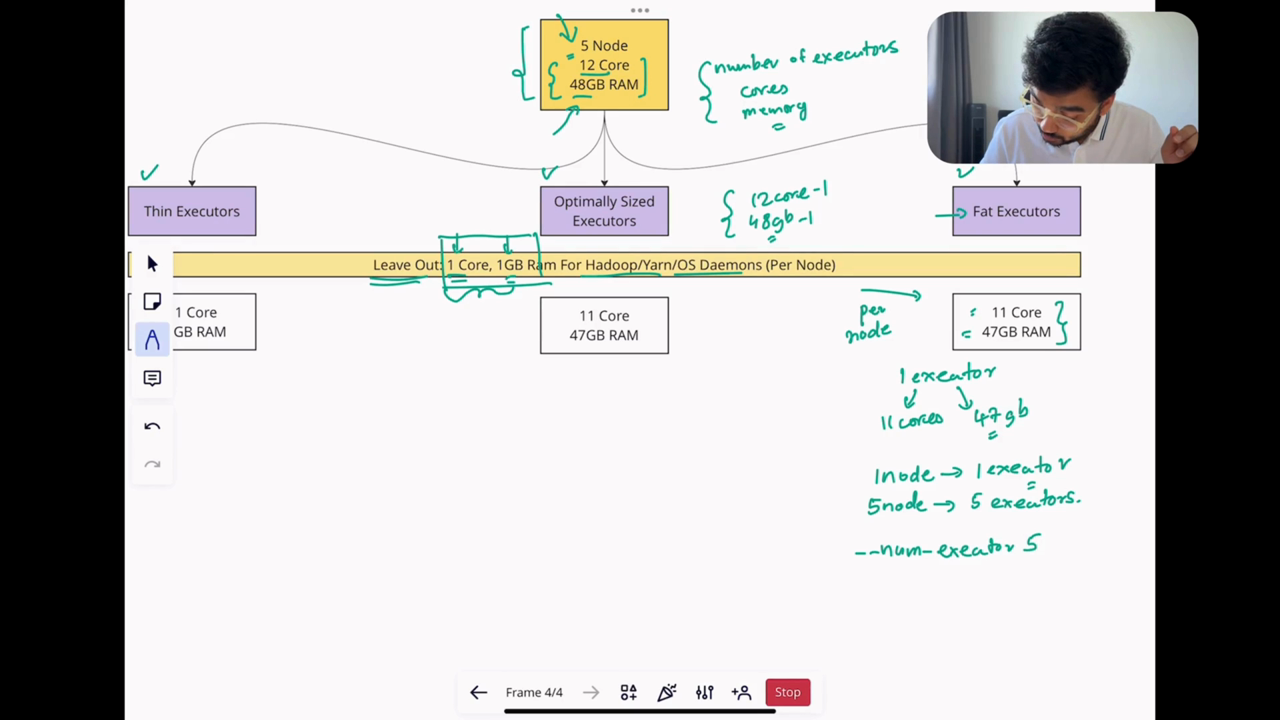 5 Node
12 Core
48GB RAM
number of executors
cores
memory
Thin Executors
Optimally Sized
Executors
12core-1
48gb-1
Fat Executors
Leave Out: 1 Core, 1GB Ram For Hadoop/Yarn/OS Daemons (Per Node)
1 Core
GB RAM
11 Core
47GB RAM
per
node
11 Core
47GB RAM
1 exeator
11 cores
47gb
1node → 1 exeator
5node → 5 exeators.
--num-exeator 5
Frame 4/4
Stop